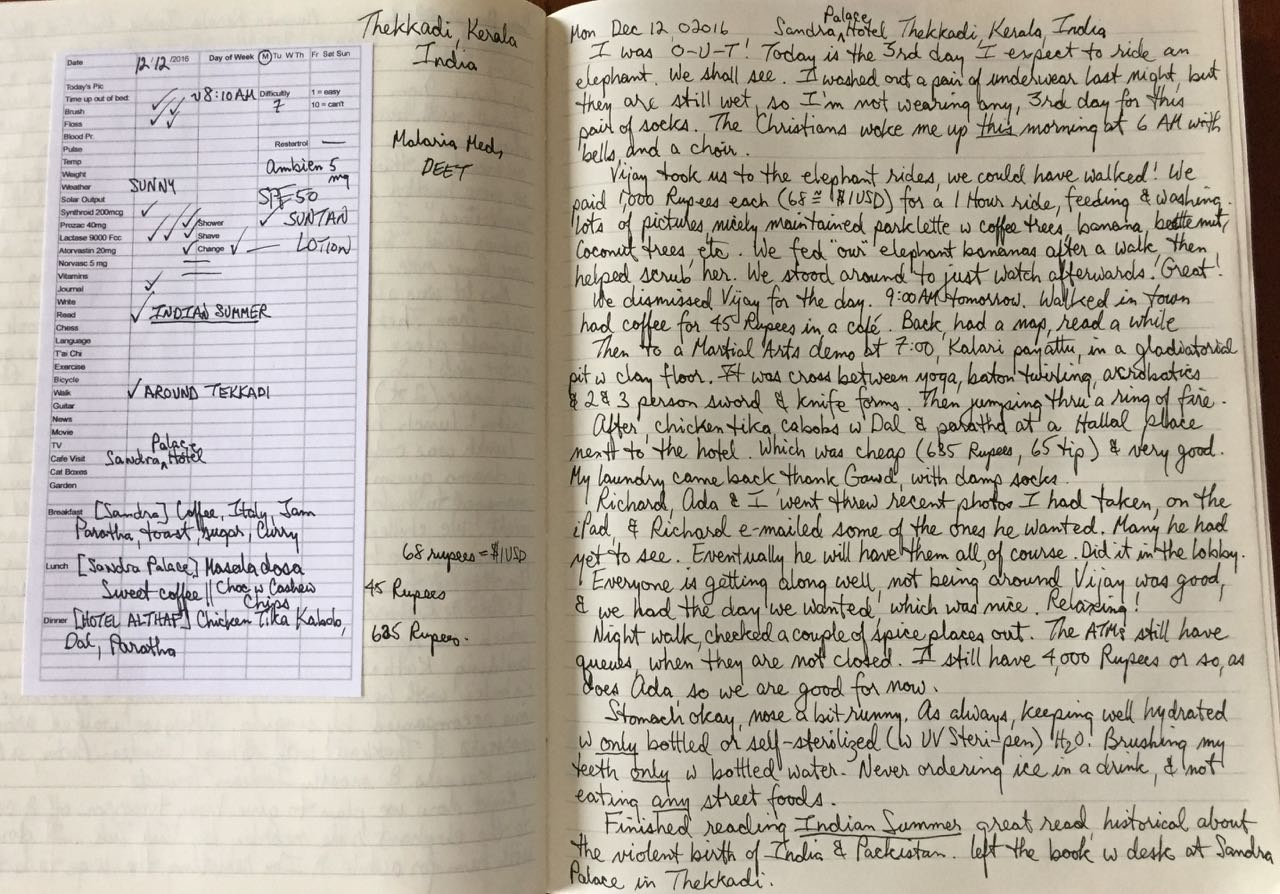 Thekkadi, Kerala
India
Date 12/12/2016 Day of Week M Tu W Th Fr Sat Sun
Today's Pic
Time up out of bed: ✓✓ ~8:10AM Difficulty 7 1 = easy
Brush ✓✓ 10 = can't
Floss ✓
Blood Pr.
Pulse Restertrol —
Temp
Weight Ambien 5 mg
Weather SUNNY
Solar Output SPF 50
Synthroid 200mcg ✓ ✓ SUNTAN
Prozac 40mg ✓ ✓✓ Shower LOTION
Lactase 9000 Fcc ✓✓✓ Shave
Atorvastin 20mg ✓ Change ✓ —
Norvasc 5 mg
Vitamins
Journal ✓
Write
Read ✓ INDIAN SUMMER
Chess
Language
T'ai Chi
Exercise
Bicycle
Walk ✓ AROUND TEKKADI
Guitar
News
Movie
TV
Cafe Visit Sandra Palace Hotel
Cat Boxes
Garden
Breakfast [Sandra] Coffee, Italy Jam
Paratha, toast, sugar, Curry
Lunch [Sandra Palace] Masala dosa
Sweet coffee || Choc w Cashew
Chips
Dinner [HOTEL ALTHAF] Chicken Tika Kabob,
Dal, Paratha
Malaria Med,
DEET
68 rupees = $1USD
45 Rupees
635 Rupees.
Mon Dec 12 02016 Sandra Palace Hotel Thekkadi, Kerala, India
I was O-U-T! Today is the 3rd day I expect to ride an
elephant. We shall see. I washed out a pair of underwear last night, but
they are still wet, so I'm not wearing any, 3rd day for this
pair of socks. The Christians woke me up this morning at 6 AM with
bells and a choir.
Vijay took us to the elephant rides, we could have walked! We
paid 1,000 Rupees each (68 ≅ $1USD) for a 1 Hour ride, feeding & washing.
lots of pictures, nicely maintained parklette w coffee trees, banana, beetle nut,
Coconut trees, etc. We fed "our" elephant bananas after a walk, then
helped scrub her. We stood around to just watch afterwards. Great!
We dismissed Vijay for the day. 9:00 AM tomorrow. Walked in town
had coffee for 45 Rupees in a café. Back, had a nap, read a while
Then to a Martial Arts demo at 7:00, Kalari payattu, in a gladiatorial
pit w clay floor. It was cross between yoga, baton twirling, acrobatics
& 2 & 3 person sword & knife forms. Then jumping thru a ring of fire.
After, chicken tika cabobs w Dal & paratha at a Hallal place
next to the hotel. Which was cheap (635 Rupees, 65 tip) & very good.
My laundry came back thank Gawd, with damp socks.
Richard, Ada & I went threw recent photos I had taken, on the
iPad, & Richard e-mailed some of the ones he wanted. Many he had
yet to see. Eventually he will have them all, of course. Did it in the lobby.
Everyone is getting along well, not being around Vijay was good,
& we had the day we wanted, which was nice. Relaxing!
Night walk, checked a couple of spice places out. The ATMs still have
queues, when they are not closed. I still have 4,000 Rupees or so, as
does Ada, so we are good for now.
Stomach okay, nose a bit runny. As always, keeping well hydrated
w only bottled or self-sterilized (w UV Steri-pen) H2O. Brushing my
teeth only w bottled water. Never ordering ice in a drink, & not
eating any street foods.
Finished reading Indian Summer great read, historical about
the violent birth of India & Packistan. left the book w desk at Sandra
Palace in Thekkadi.